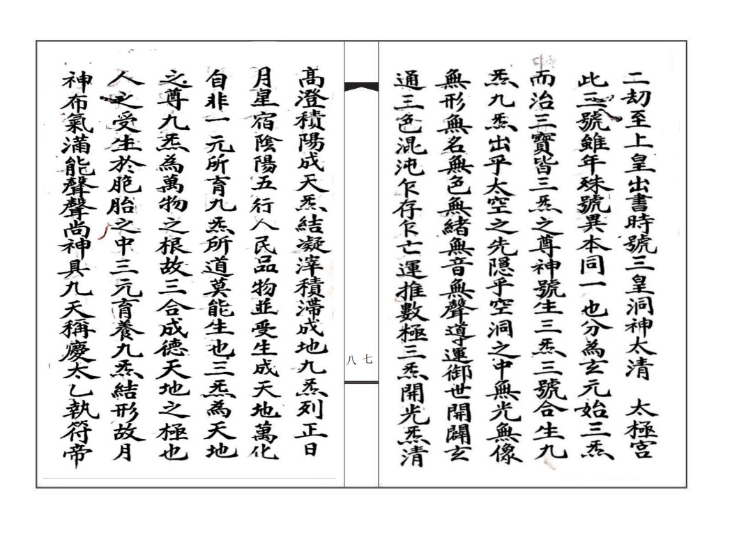 二刧至上皇出書時號三皇洞神太清　太極宮
此三號雖年殊號異本同一也分為玄元始三炁
而治三寶皆三炁之尊神號生三炁三號合生九
炁九炁出乎太空之先隱乎空洞之中無光無像
無形無名無色無緒無音無聲導運御世開闢玄
通三色混沌乍存乍亡運推數極三炁開光炁清
八七
高澄積陽成天炁結凝滓積滯成地九炁列正日
月星宿陰陽五行人民品物並受生成天地萬化
自非一元所育九炁所道莫能生也三炁為天地
之尊九炁為萬物之根故三合成德天地之極也
人之受生於胞胎之中三元育養九炁結形故月
神布氣滿能聲聲尚神具九天稱慶太乙執符帝